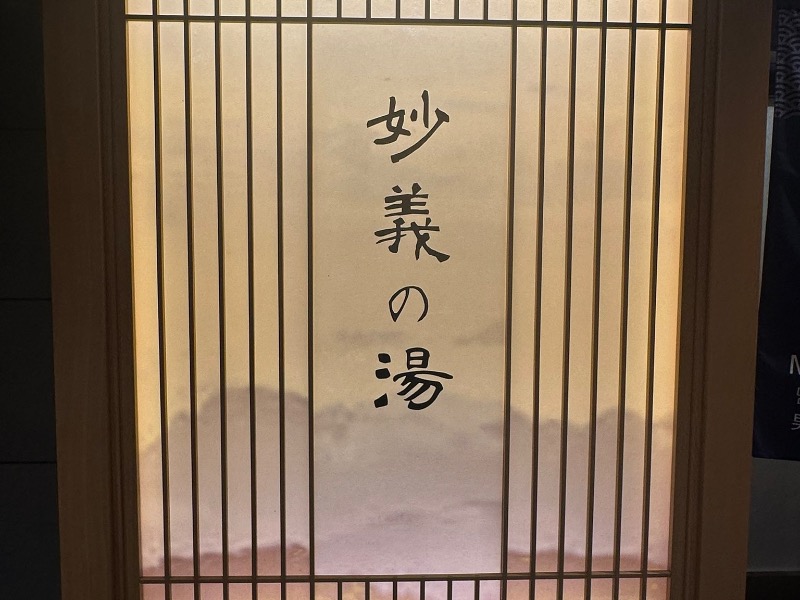 妙義の湯